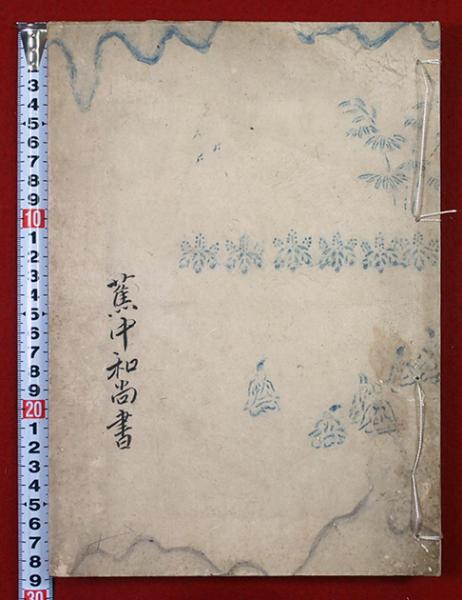 蕉中和尚書
3
4
5
6
7
8
9
10
1
2
3
4
5
6
7
8
9
20
1
2
3
4
5
6
7
8
9
30